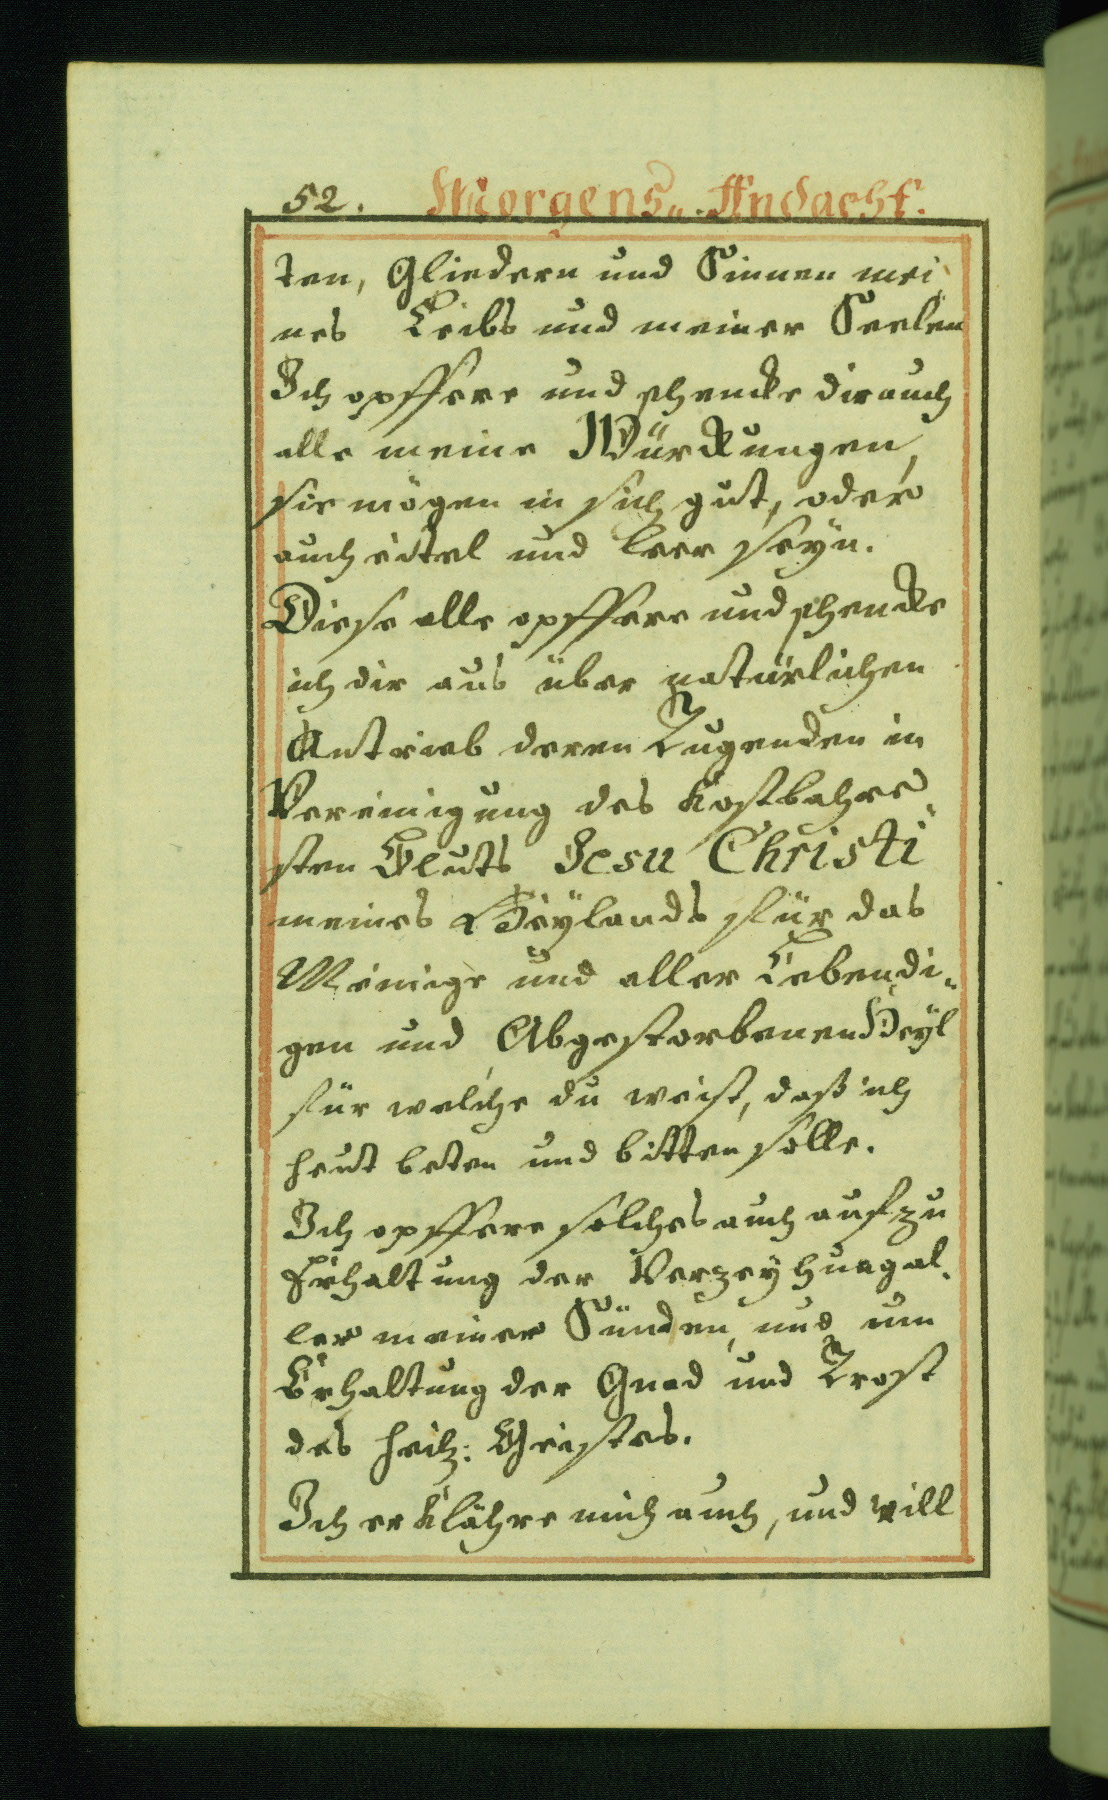 52. Morgens„ Andacht.
ten, Gliedern und Sinnen mei„
nes Leibs und meiner Seelen
Ich opffere und schencke dir auch
alle meine Würckungen,
sie mögen in sich gut, oder
auch eitel und leer seÿn.
Diese alle opffere und schencke
ich dir aus über natürlichen
Antrieb deren Tugenden in
Vereinigung des Kostbahre„
sten Bluts Jesu Christi
meines Heÿlands für das
Meinige und aller Lebendi„
gen und Abgestorbenen Heÿl
für welche du weist, daß ich
heut beten und bitten solle.
Ich opffere solches auch auf zu
Erhaltung der Verzeÿhung al„
ler meiner Sünden, und um
Erhaltung der Gnad und Trost
des heilg: Geistes.
Ich erklähre mich auch, und will